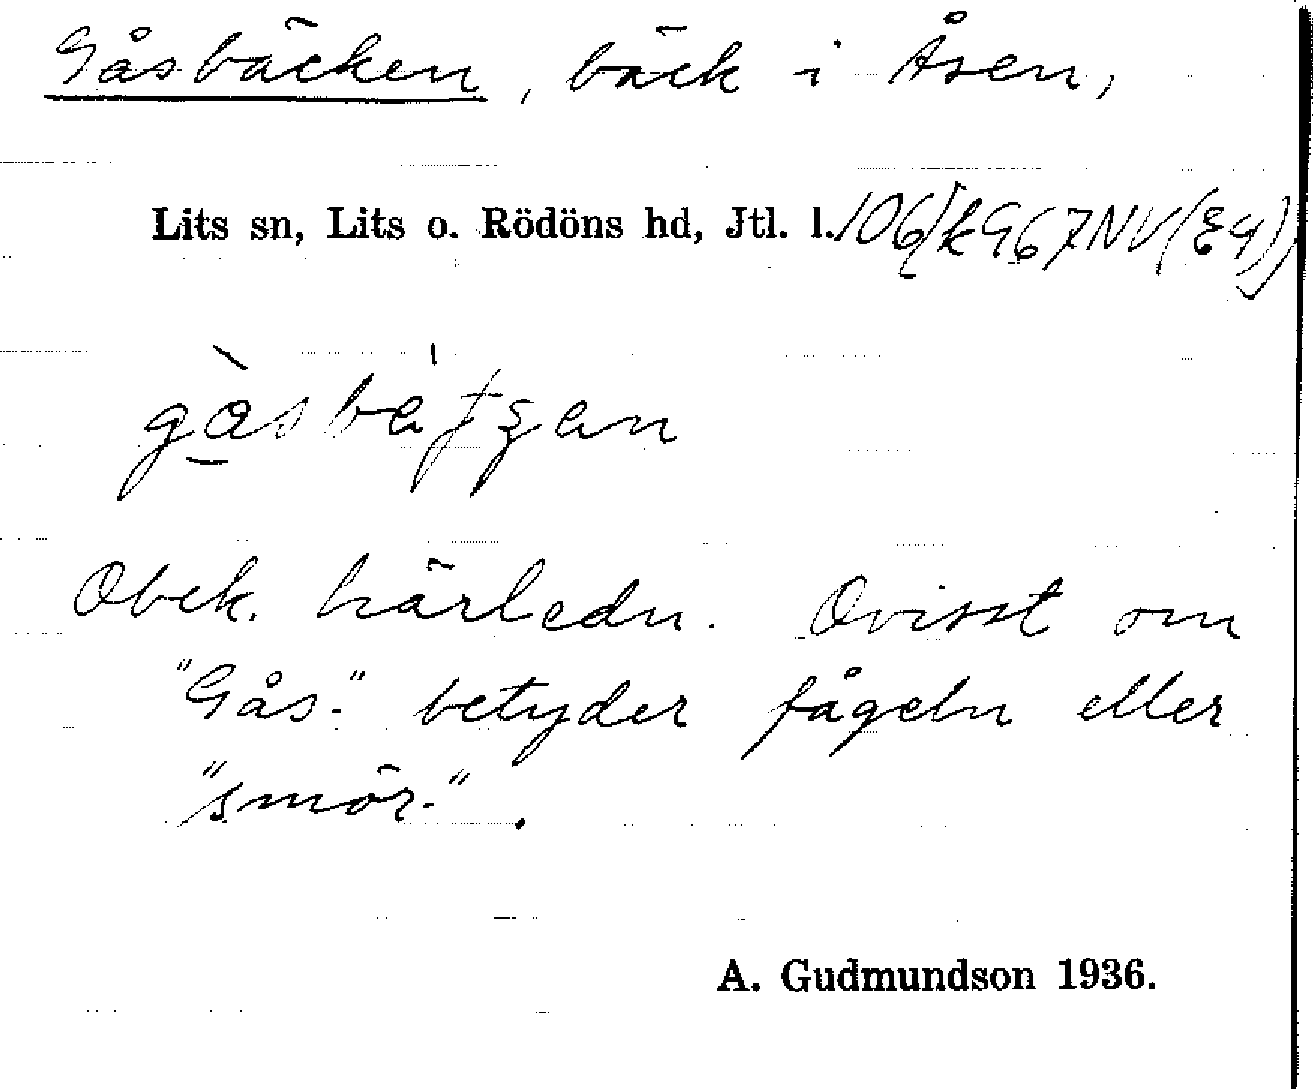 Gåsbäcken, bäck i Åsen,
Lits sn, Lits o. Rödöns hd, Jtl. l.
Obek. härledn. Ovisst om
"Gås-" betyder fågeln eller
"smör-".
A. Gudmundson 1936.